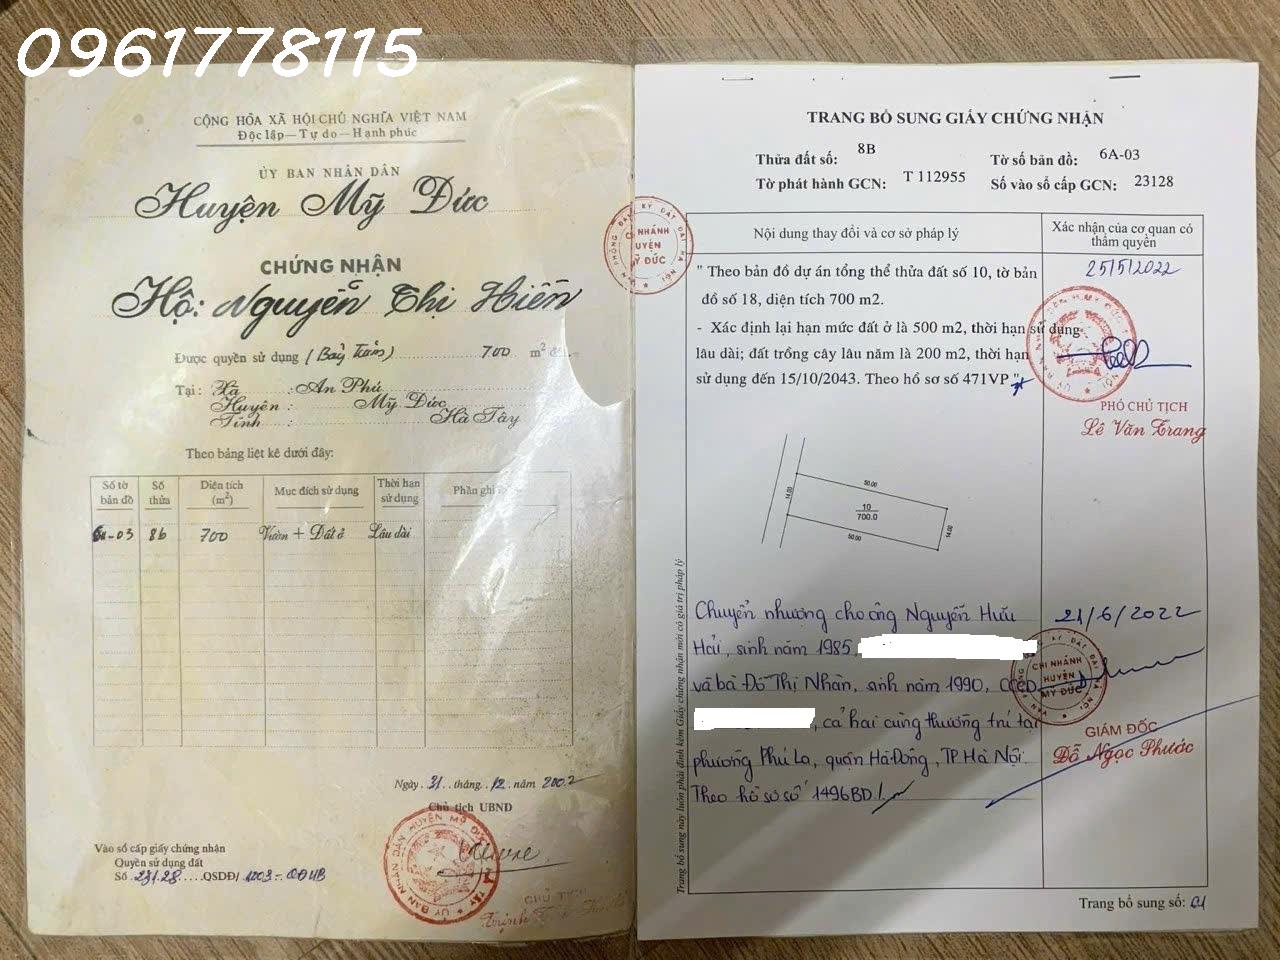 0961778115
CỘNG HÒA XÃ HỘI CHỦ NGHĨA VIỆT NAM
Độc lập — Tự do — Hạnh phúc
ỦY BAN NHÂN DÂN
Huyện Mỹ Đức
CHỨNG NHẬN
Hộ: Nguyễn Thị Hiền
Được quyền sử dụng (Bảy trăm) 700 m²
Tại: Xã : An Phú
Huyện : Mỹ Đức
Tỉnh : Hà Tây
Theo bảng liệt kê dưới đây:
Số tờ bản đồ Số thửa Diện tích (m²) Mục đích sử dụng Thời hạn sử dụng Phần ghi
6A-03 8b 700 Vườn + Đất ở Lâu dài
Ngày 31 tháng 12 năm 2002
Chủ tịch UBND
Vào sổ cấp giấy chứng nhận
Quyền sử dụng đất
Số 23128 QSDĐ/ 1003-QĐUB
ỦY BAN NHÂN DÂN HUYỆN MỸ ĐỨC
CHỦ TỊCH
TRANG BỔ SUNG GIẤY CHỨNG NHẬN
Thửa đất số: 8B Tờ số bản đồ: 6A-03
Tờ phát hành GCN: T 112955 Số vào sổ cấp GCN: 23128
VĂN PHÒNG ĐĂNG KÝ ĐẤT ĐAI HÀ NỘI
CHI NHÁNH
HUYỆN
MỸ ĐỨC
Nội dung thay đổi và cơ sở pháp lý
Xác nhận của cơ quan có thẩm quyền
" Theo bản đồ dự án tổng thể thửa đất số 10, tờ bản
đồ số 18, diện tích 700 m2.
- Xác định lại hạn mức đất ở là 500 m2, thời hạn sử dụng
lâu dài; đất trồng cây lâu năm là 200 m2, thời hạn
sử dụng đến 15/10/2043. Theo hồ sơ số 471VP "
25/5/2022
PHÓ CHỦ TỊCH
Lê Văn Trang
50.00
14.00
10
700.0
14.00
50.00
Chuyển nhượng cho ông Nguyễn Hữu
Hải, sinh năm 1985,
và bà Đỗ Thị Nhàn, sinh năm 1990, CCCD
, cả hai cùng thường trú tại
phường Phú La, quận Hà Đông, TP Hà Nội.
Theo hồ sơ số 1496BD./
21/6/2022
VĂN PHÒNG ĐĂNG KÝ ĐẤT ĐAI HÀ NỘI
CHI NHÁNH
HUYỆN
MỸ ĐỨC
GIÁM ĐỐC
Đỗ Ngọc Phước
Trang bổ sung này luôn phải đính kèm Giấy chứng nhận mới có giá trị pháp lý
Trang bổ sung số: 01